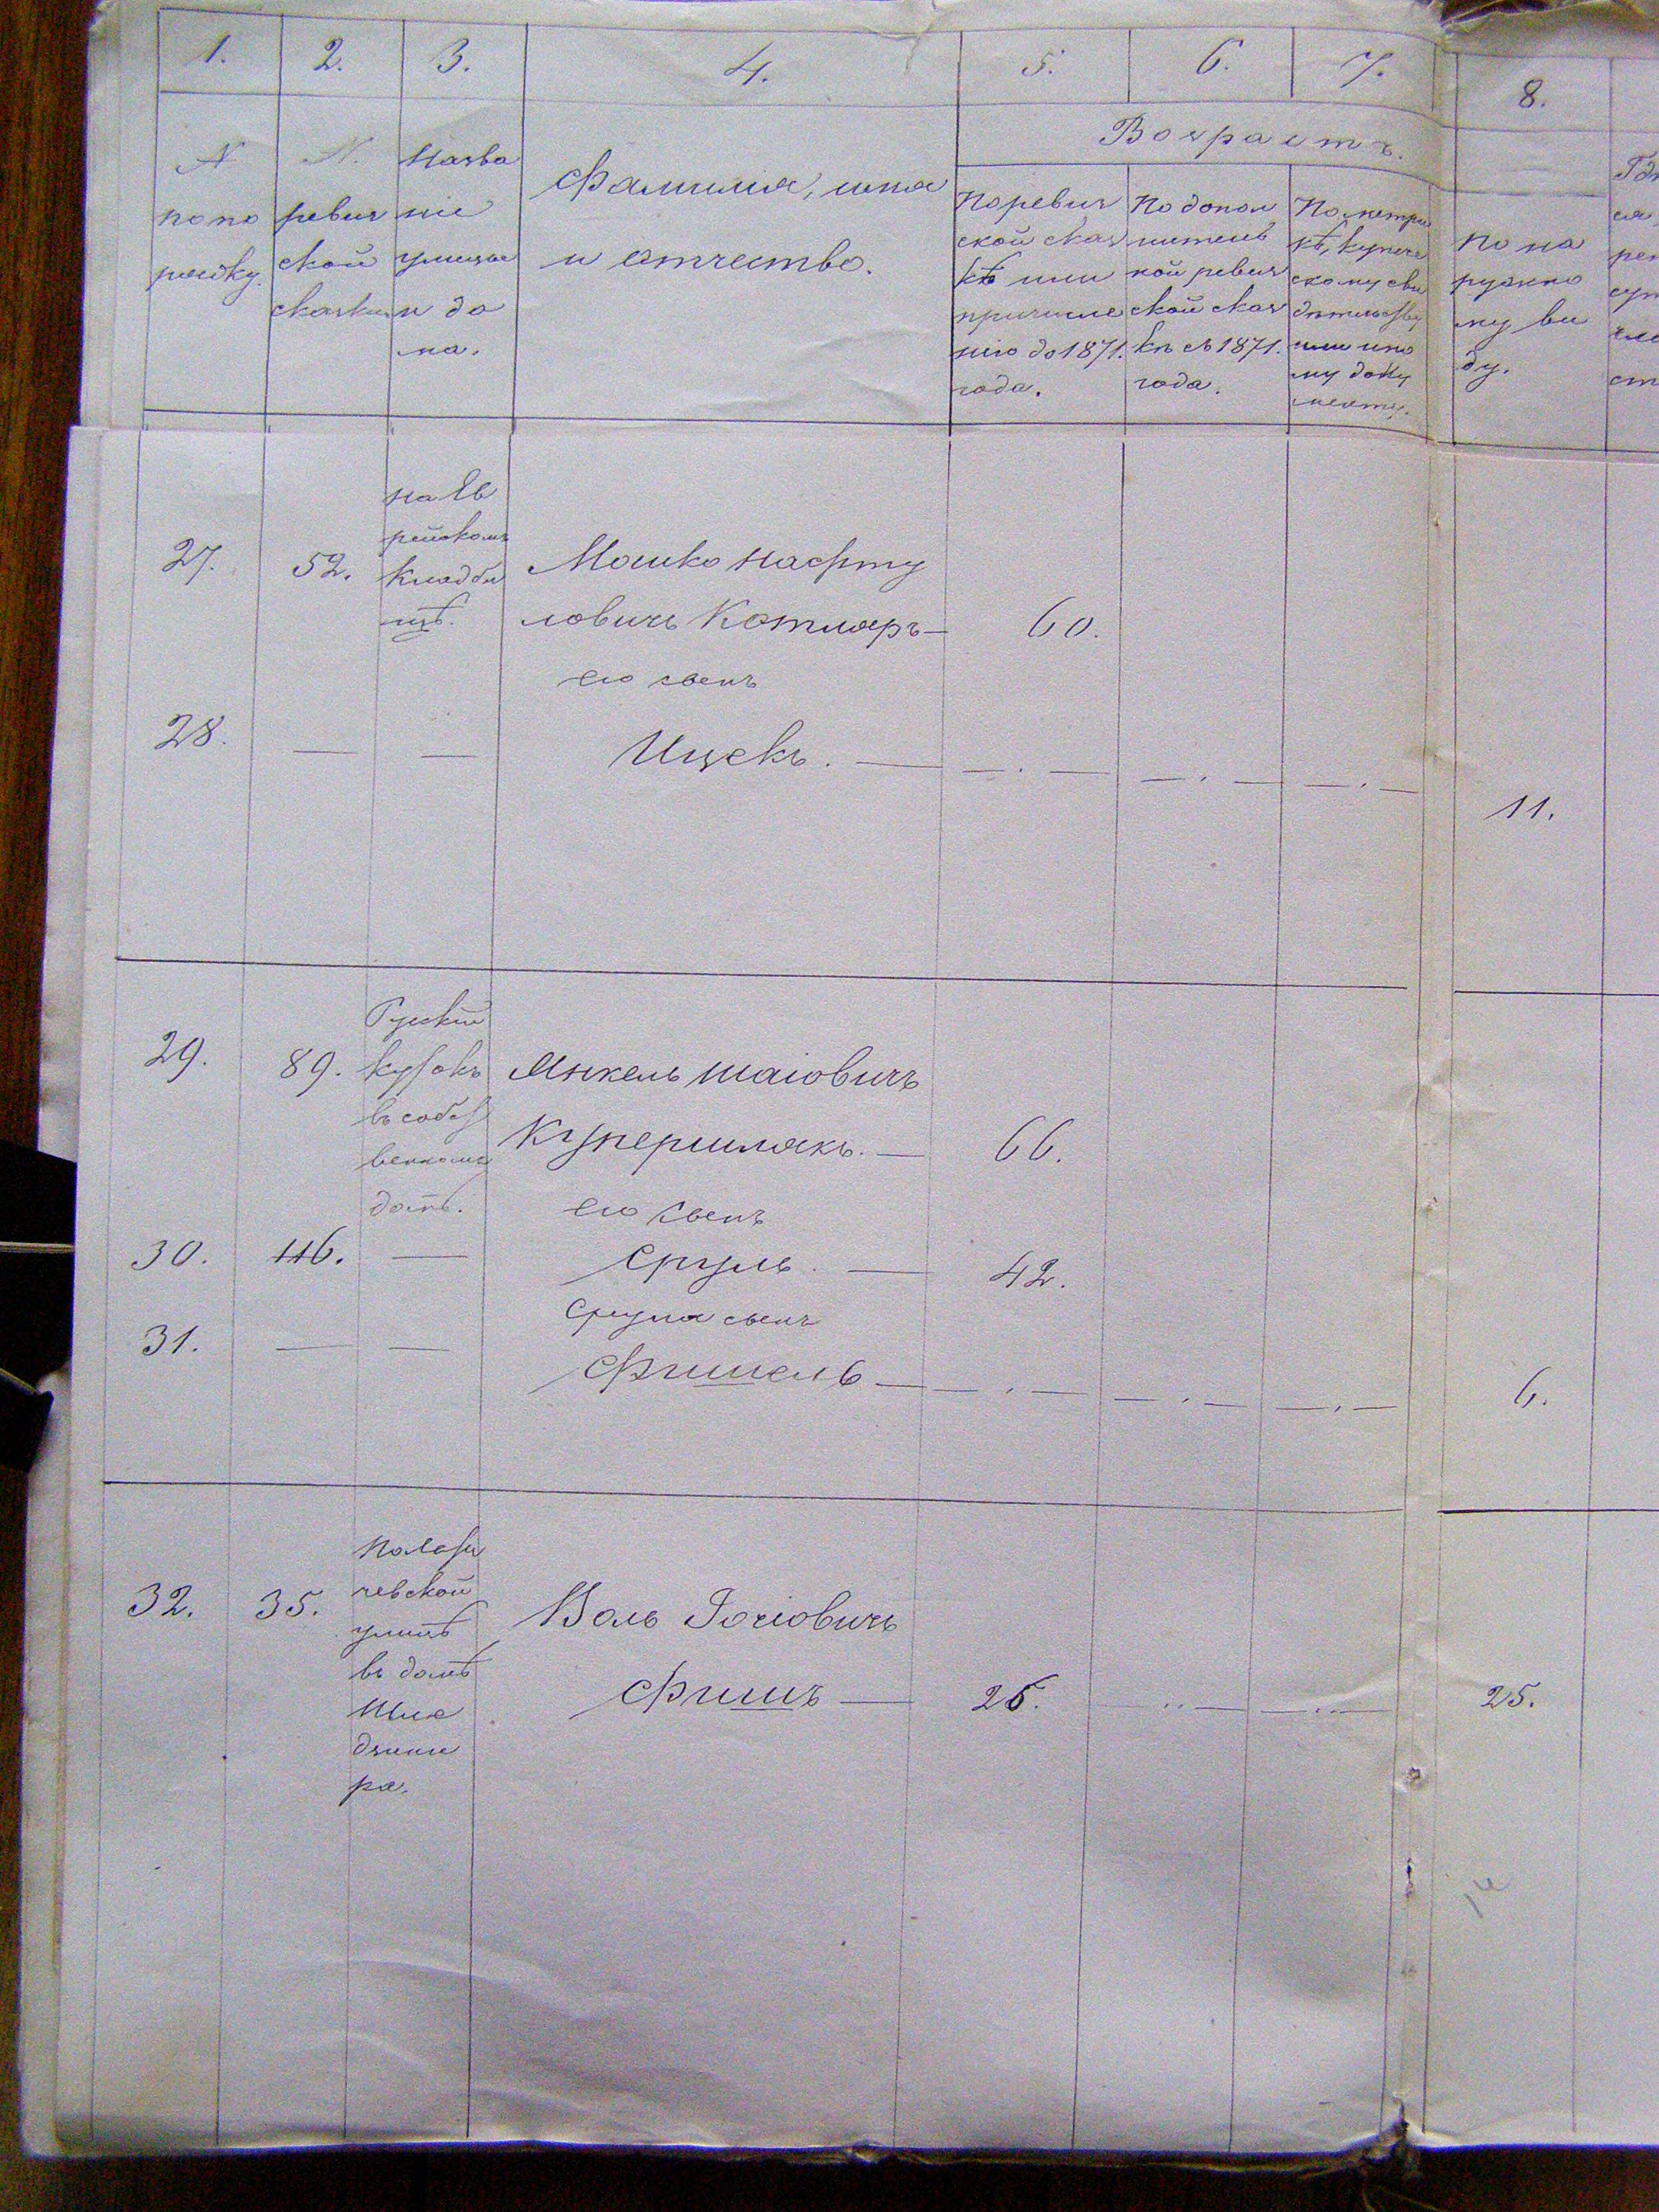 1. 2. 3. 4. 5. 6. 7. 8.
Возрастъ.
№
по по
рядку.
№.
ревиз
ской
сказки
Назва
ніе
улицы
и до
ма.
Фамилія, имя
и отчество.
По ревиз
ской сказ
кѣ или
причисле
нію до 1871.
года.
По допол
нитель
ной ревиз
ской сказ
кѣ съ 1871.
года.
По метри
кѣ, купече
скому сви
дѣтельству
или ино
му доку
менту.
По на
ружно
му ви
ду.
27. 52.
на Ев
рейскомъ
Кладби
щѣ.
Мошко Нафту
ловичъ Котляръ — 60.
его сынъ
28. — — Ицекъ. — — . — — . — — . — 11.
29. 89.
Рускій
въ собст
венномъ
домѣ.
Янкель Шаіовичъ
Купершлякъ. — 66.
его сынъ
30. 116. — Сруль. — 42.
Сруля сынъ
31. — — Фишель — — . — — . — — . — 6.
32. 35.
чевской
улицѣ
въ домѣ
Шле
ра.
Волъ Іосіовичъ
Фишъ — 25. .. — — .. — 25.